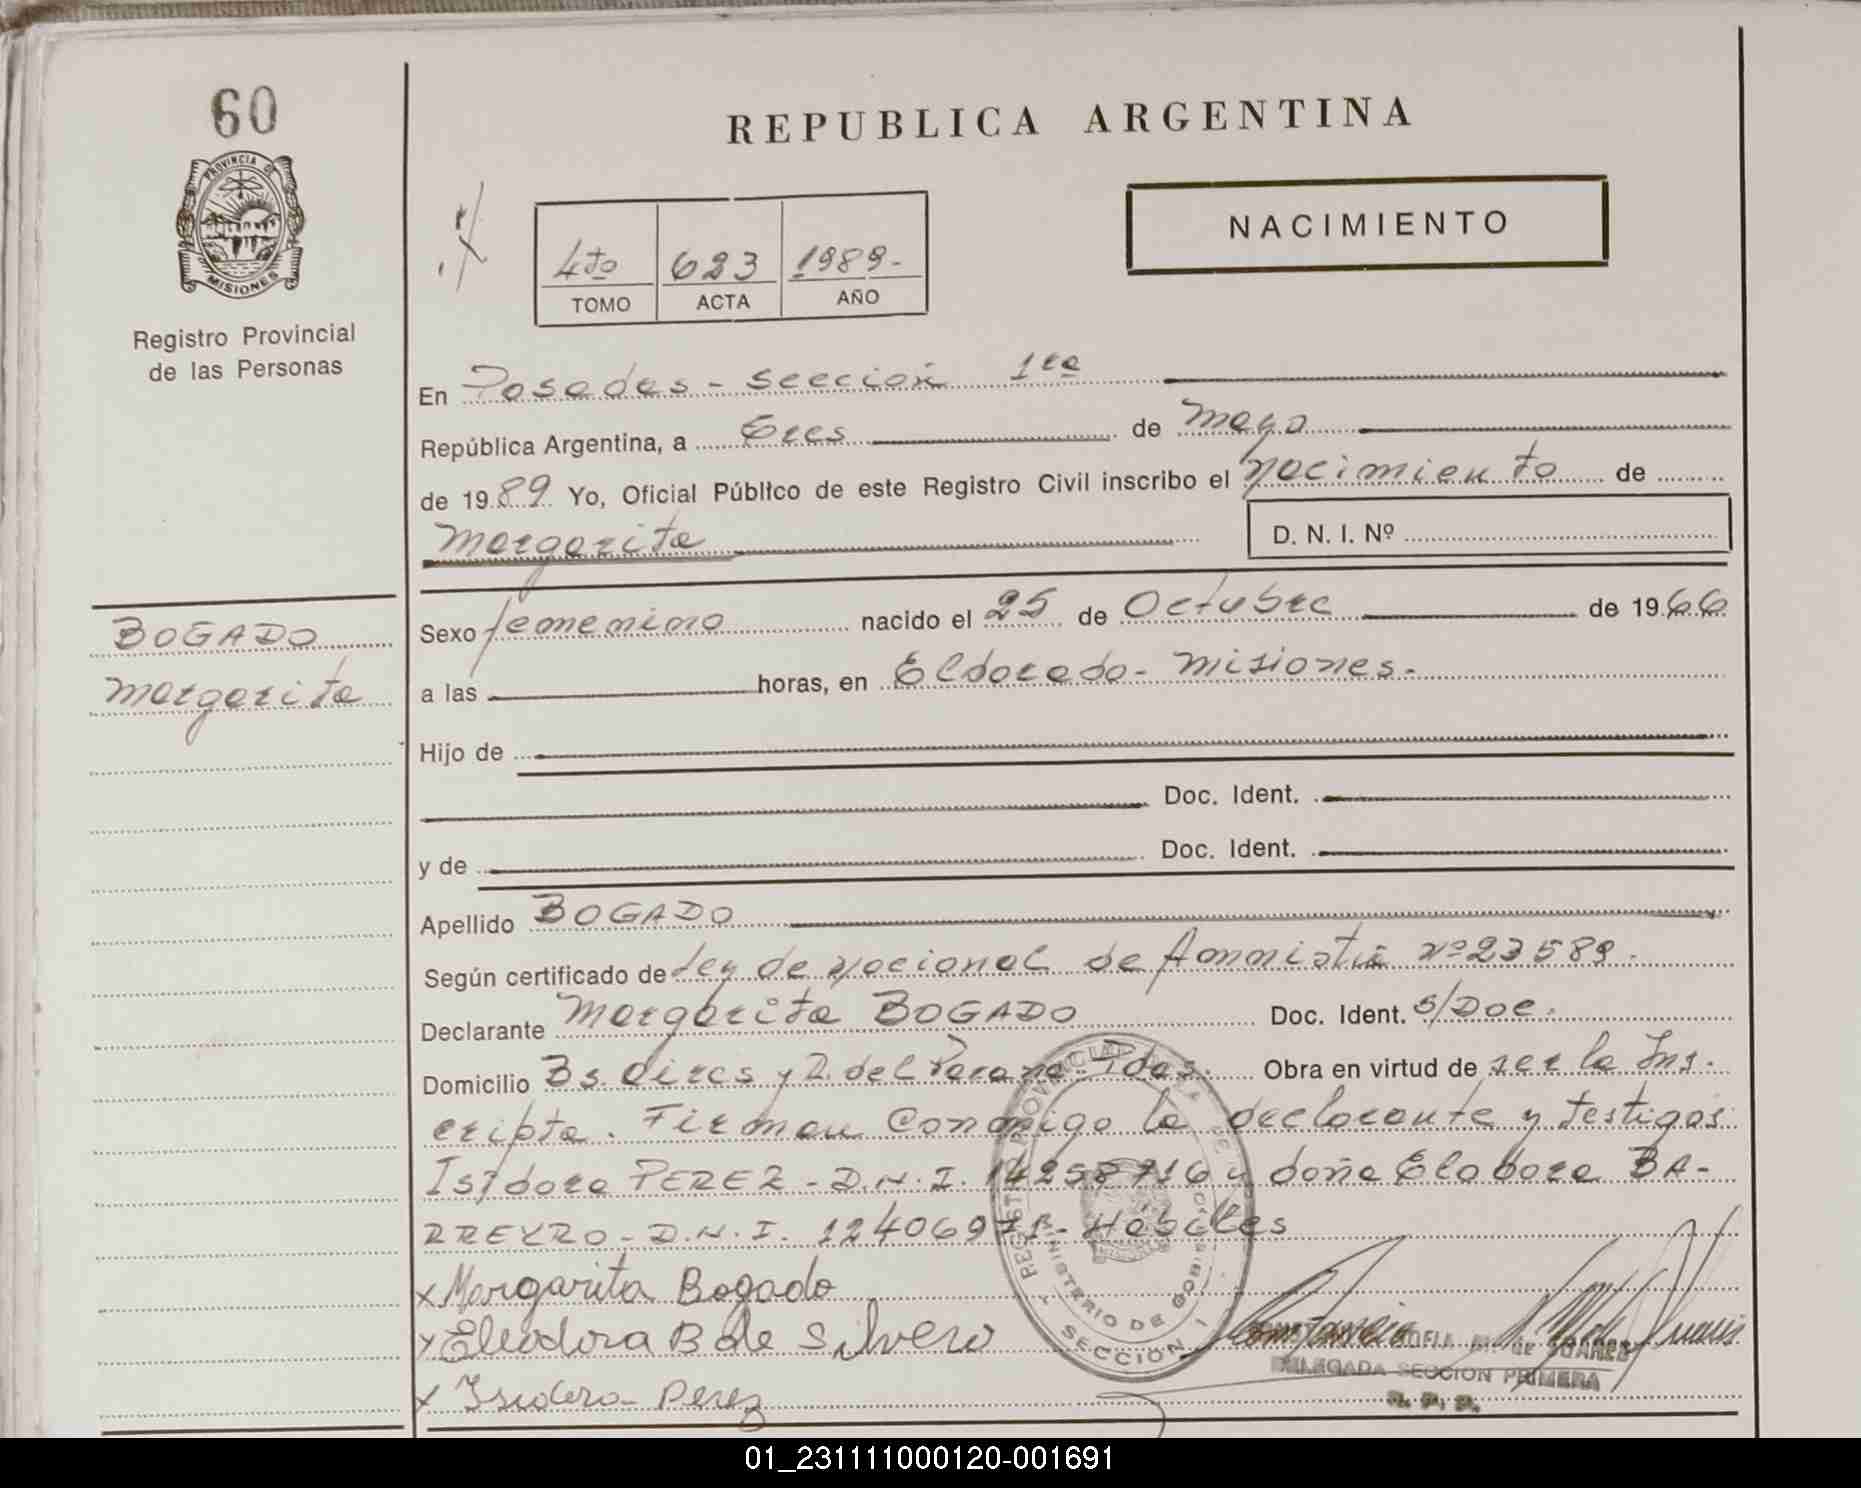 60
PROVINCIA DE
MISIONES
Registro Provincial
de las Personas
REPUBLICA ARGENTINA
NACIMIENTO
4to 623 1989-
TOMO ACTA AÑO
En Posadas - sección 1ra
República Argentina, a tres de mayo
de 1989 Yo, Oficial Público de este Registro Civil inscribo el nacimiento de
Margarita D. N. I. Nº
BOGADO
Margarita
Sexo femenino nacido el 25 de Octubre de 1966
a las horas, en Eldorado - Misiones.
Hijo de
Doc. Ident.
y de Doc. Ident.
Apellido BOGADO
Según certificado de Ley de nacional de Amnistía nº 23589.
Declarante Margarita BOGADO Doc. Ident. s/Doc.
Domicilio Bs. aires y D. del Parana - Pdas. Obra en virtud de ser la Ins-
cripta. Firman Conmigo la declarante y testigos
Isidora PEREZ - D.N.I. 14258716 y doña Eladora BA-
RREYRO - D.N.I. 12406971 - Hábiles
x Margarita Bogado
x Eleodora B de Silvero
x Isidora Perez
REGISTRO PROVINCIAL DE
MINISTERIO DE GOBIERNO
SECCION 1
DELEGADA SECCION PRIMERA
R. P. P.
01_231111000120-001691